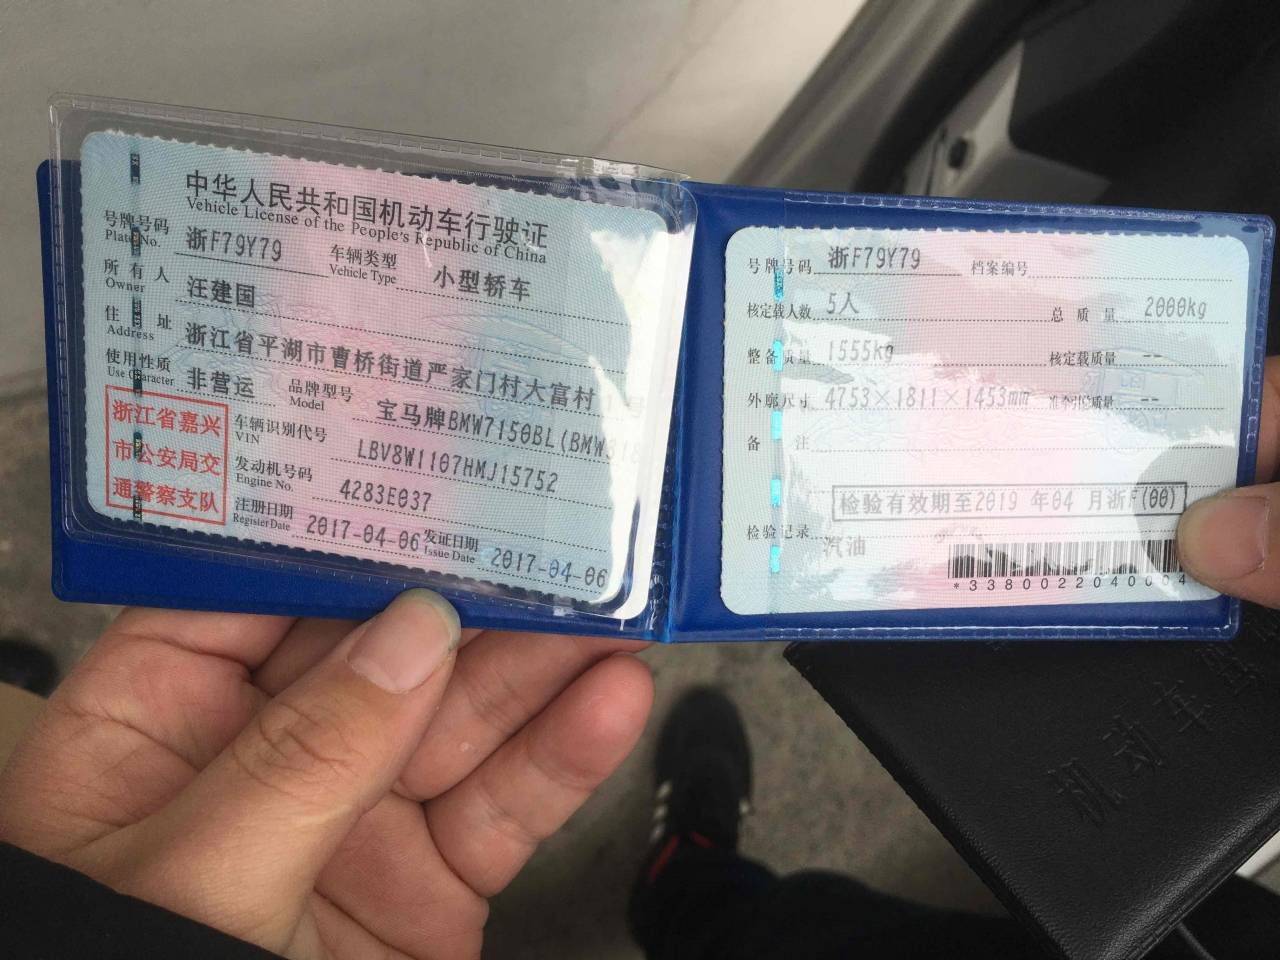 中华人民共和国机动车行驶证
Vehicle License of the People's Republic of China
号牌号码 浙F79Y79 车辆类型 小型轿车
Plate No. Vehicle Type
所有人 汪建国
Owner
住址 浙江省平湖市曹桥街道严家门村大富村
Address
使用性质 非营运 品牌型号 宝马牌BMW7150BL(BMW318
Use Character Model
浙江省嘉兴
市公安局交
通警察支队
车辆识别代号 LBV8W1107HMJ15752
VIN
发动机号码 4283E037
Engine No.
注册日期 2017-04-06 发证日期 2017-04-06
Register Date Issue Date
号牌号码 浙F79Y79 档案编号
核定载人数 5人 总质量 2000kg
整备质量 1555kg 核定载质量 --
外廓尺寸 4753×1811×1453mm 准牵引总质量 --
备注
检验有效期至2019 年04 月浙F(00)
检验记录
汽油
*3380022040004
机动车